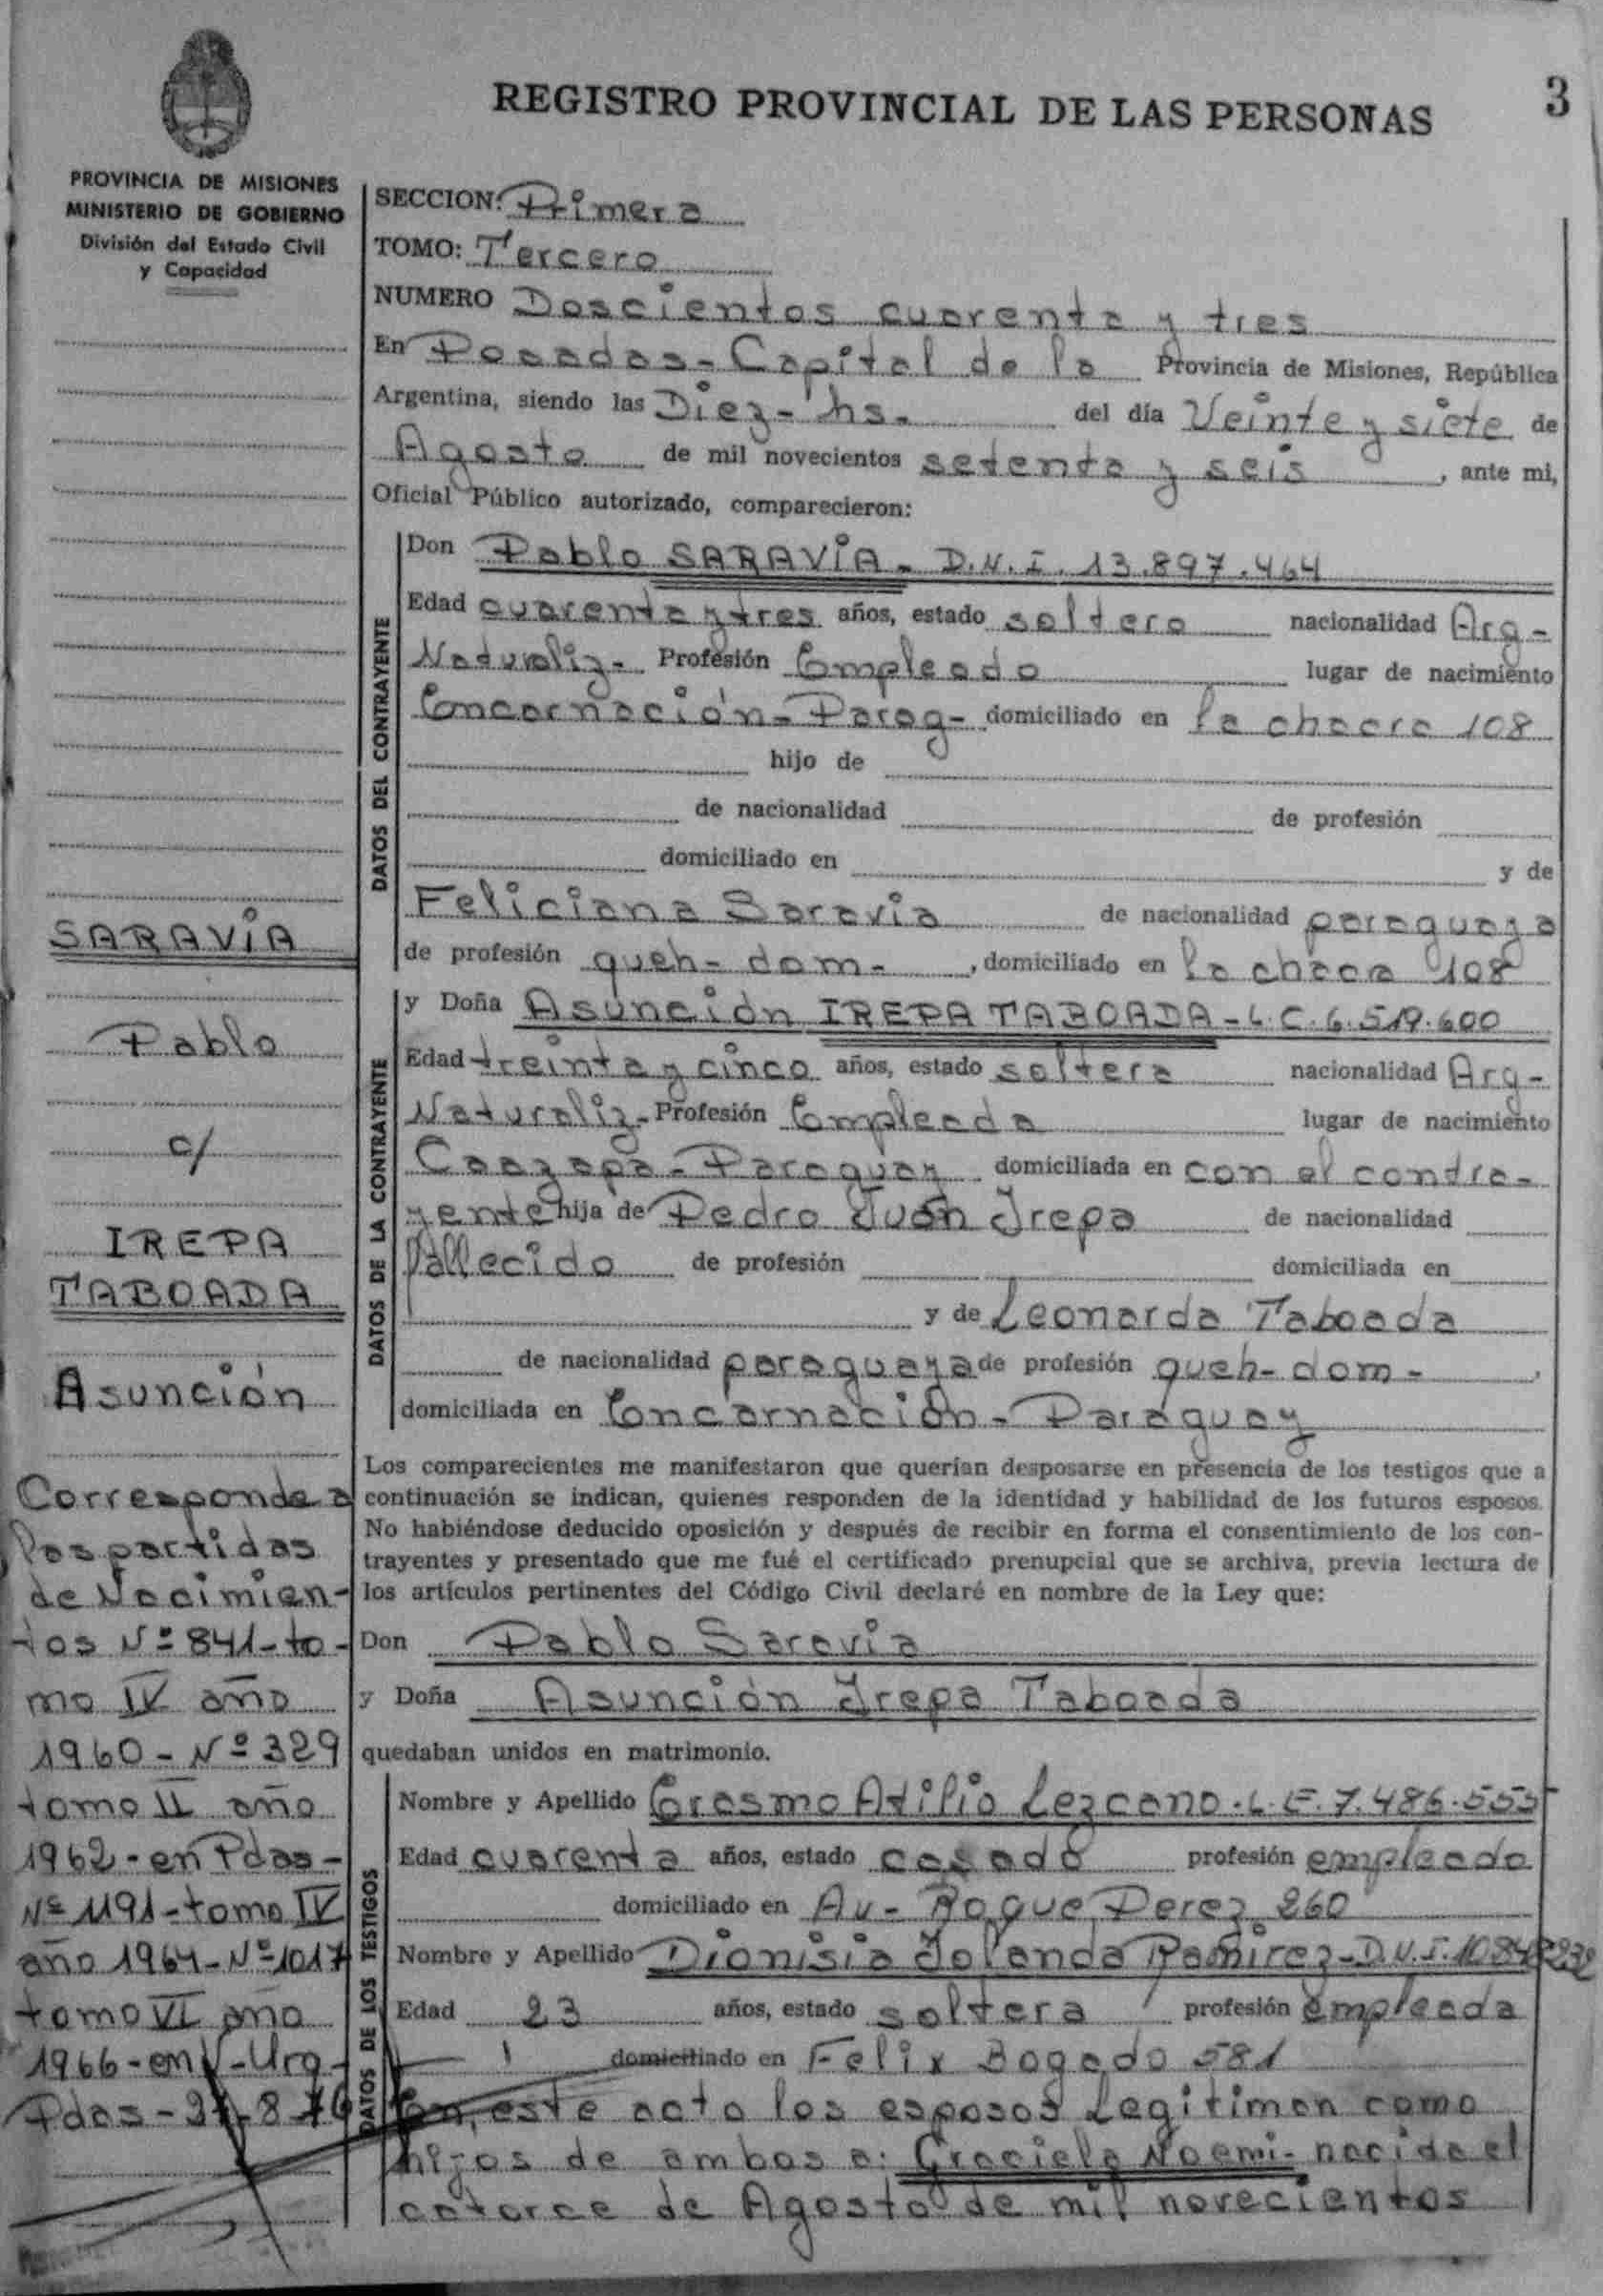 REGISTRO PROVINCIAL DE LAS PERSONAS
3
PROVINCIA DE MISIONES
MINISTERIO DE GOBIERNO
División del Estado Civil
y Capacidad
SECCION: Primera
TOMO: Tercero
NUMERO Doscientos cuarenta y tres
En Posadas-Capital de la Provincia de Misiones, República
Argentina, siendo las Diez-hs- del día Veinte y siete de
Agosto de mil novecientos setenta y seis, ante mi,
Oficial Público autorizado, comparecieron:
DATOS DEL CONTRAYENTE
Don Pablo SARAVIA- D.N.I. 13.897.464
Edad cuarenta y tres años, estado soltero nacionalidad Arg-
Naturaliz- Profesión Empleado lugar de nacimiento
Encarnación-Parag- domiciliado en la chacra 108
hijo de
de nacionalidad de profesión
domiciliado en y de
Feliciana Saravia de nacionalidad paraguaya
de profesión queh-dom-, domiciliado en la chaca 108
DATOS DE LA CONTRAYENTE
y Doña Asunción IREPA TABOADA-L.C.6.519.600
Edad treinta y cinco años, estado soltera nacionalidad Arg-
Naturaliz- Profesión Empleada lugar de nacimiento
Caazapa-Paraguay domiciliada en con el contra-
yente hija de Pedro Juán Irepa de nacionalidad
fallecido de profesión domiciliada en
y de Leonarda Taboada
de nacionalidad paraguaya de profesión queh-dom-,
domiciliada en Encarnación-Paraguay
Los comparecientes me manifestaron que querían desposarse en presencia de los testigos que a
continuación se indican, quienes responden de la identidad y habilidad de los futuros esposos.
No habiéndose deducido oposición y después de recibir en forma el consentimiento de los con-
trayentes y presentado que me fué el certificado prenupcial que se archiva, previa lectura de
los artículos pertinentes del Código Civil declaré en nombre de la Ley que:
Don Pablo Saravia
y Doña Asunción Irepa Taboada
quedaban unidos en matrimonio.
DATOS DE LOS TESTIGOS
Nombre y Apellido Erasmo Atilio Lezcano.L.E.7.486.555
Edad cuarenta años, estado casado profesión empleado
domiciliado en Av- Roque Perez 260
Nombre y Apellido Dionisia Yolanda Ramirez-D.N.I.
Edad 23 años, estado soltera profesión empleada
domiciliado en Felix Bogado 581
En este acto los esposos Legitiman como
hijos de ambos a: Graciela Noemi- nacida el
catorce de Agosto de mil novecientos
SARAVIA
Pablo
c/
IREPA
TABOADA
Asunción
Corresponde a
las partidas
de Nacimien-
tos Nº 841-to-
mo IV año
1960-Nº 329
tomo II año
1962-en Pdas-
Nº 1191-tomo IV
año 1964-Nº 1017
tomo VI año
1966-en V-Urq-
Pdas-27-8-76